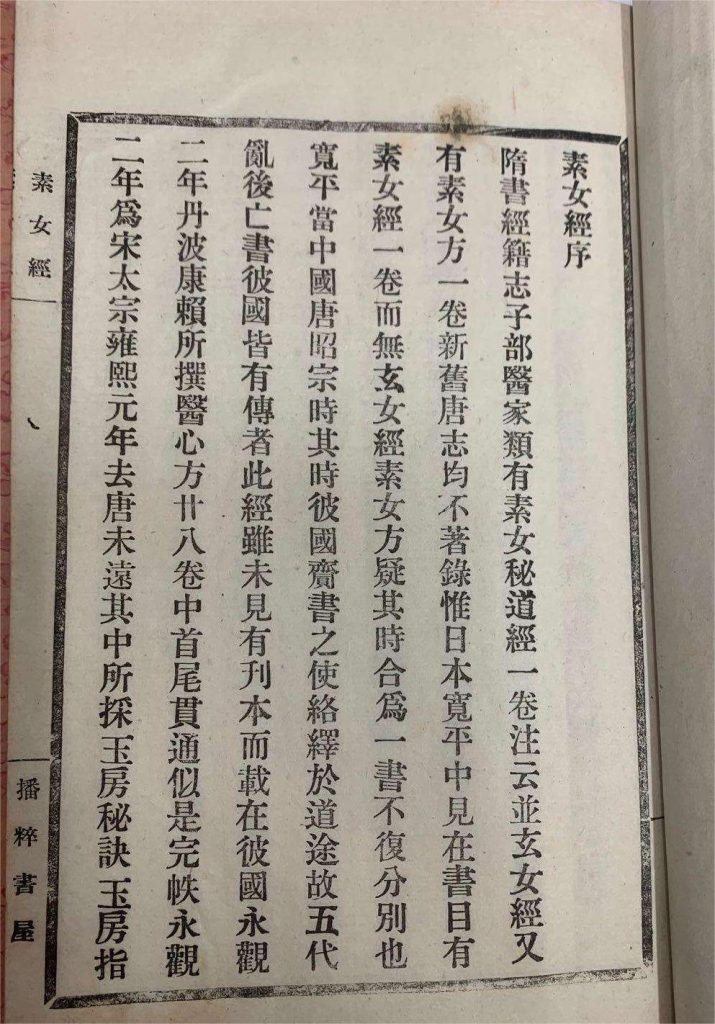 素女經序
隋書經籍志子部醫家類有素女秘道經一卷注云並玄女經又
有素女方一卷新舊唐志均不著錄惟日本寬平中見在書目有
素女經一卷而無玄女經素女方疑其時合爲一書不復分別也
寬平當中國唐昭宗時其時彼國齎書之使絡繹於道途故五代
亂後亡書彼國皆有傳者此經雖未見有刊本而載在彼國永觀
二年丹波康賴所撰醫心方廿八卷中首尾貫通似是完帙永觀
二年爲宋太宗雍熙元年去唐未遠其中所採玉房秘訣玉房指
素女經
播粹書屋